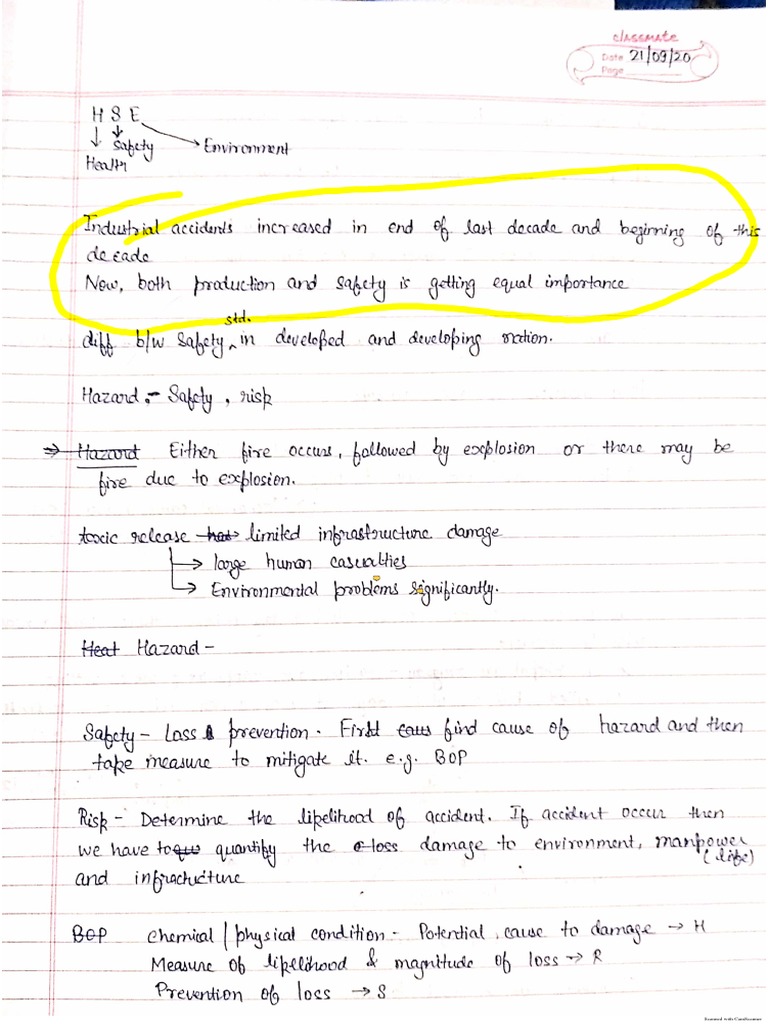 classmate
Date 21/09/20
Page
H S E
Safety
Environment
Health
Industrial accidents increased in end of last decade and beginning of this
decade
Now, both production and safety is getting equal importance
std.
diff b/w safety ^ in developed and developing nation.
Hazard, - Safety, risk
⇒ Hazard Either fire occurs, followed by explosion or there may be
fire due to explosion.
toxic release → limited infrastructure damage
→ large human casualties
→ Environmental problems significantly.
Heat Hazard -
Safety - Loss prevention. First find cause of hazard and then
take measure to mitigate it. e.g. BOP
Risk - Determine the likelihood of accident. If accident occur then
we have to quantify the loss damage to environment, manpower
(life)
and infracture
BOP Chemical / physical condition - Potential cause to damage → H
Measure of likelihood & magnitude of loss → R
Prevention of loss → S
Scanned with CamScanner